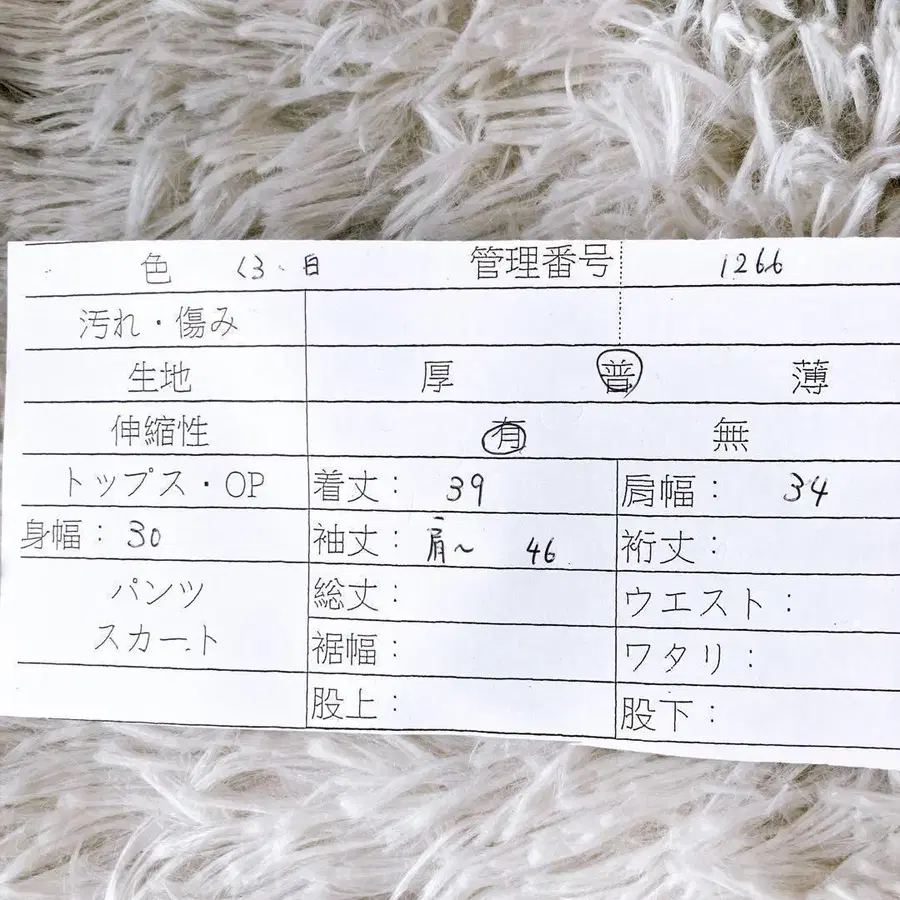 色 くろ、白 管理番号 1266
汚れ・傷み
生地 厚 普 薄
伸縮性 有 無
トップス・OP 着丈： 39 肩幅： 34
身幅： 30 袖丈： 肩〜 46 裄丈：
パンツ 総丈： ウエスト：
スカート 裾幅： ワタリ：
股上： 股下：